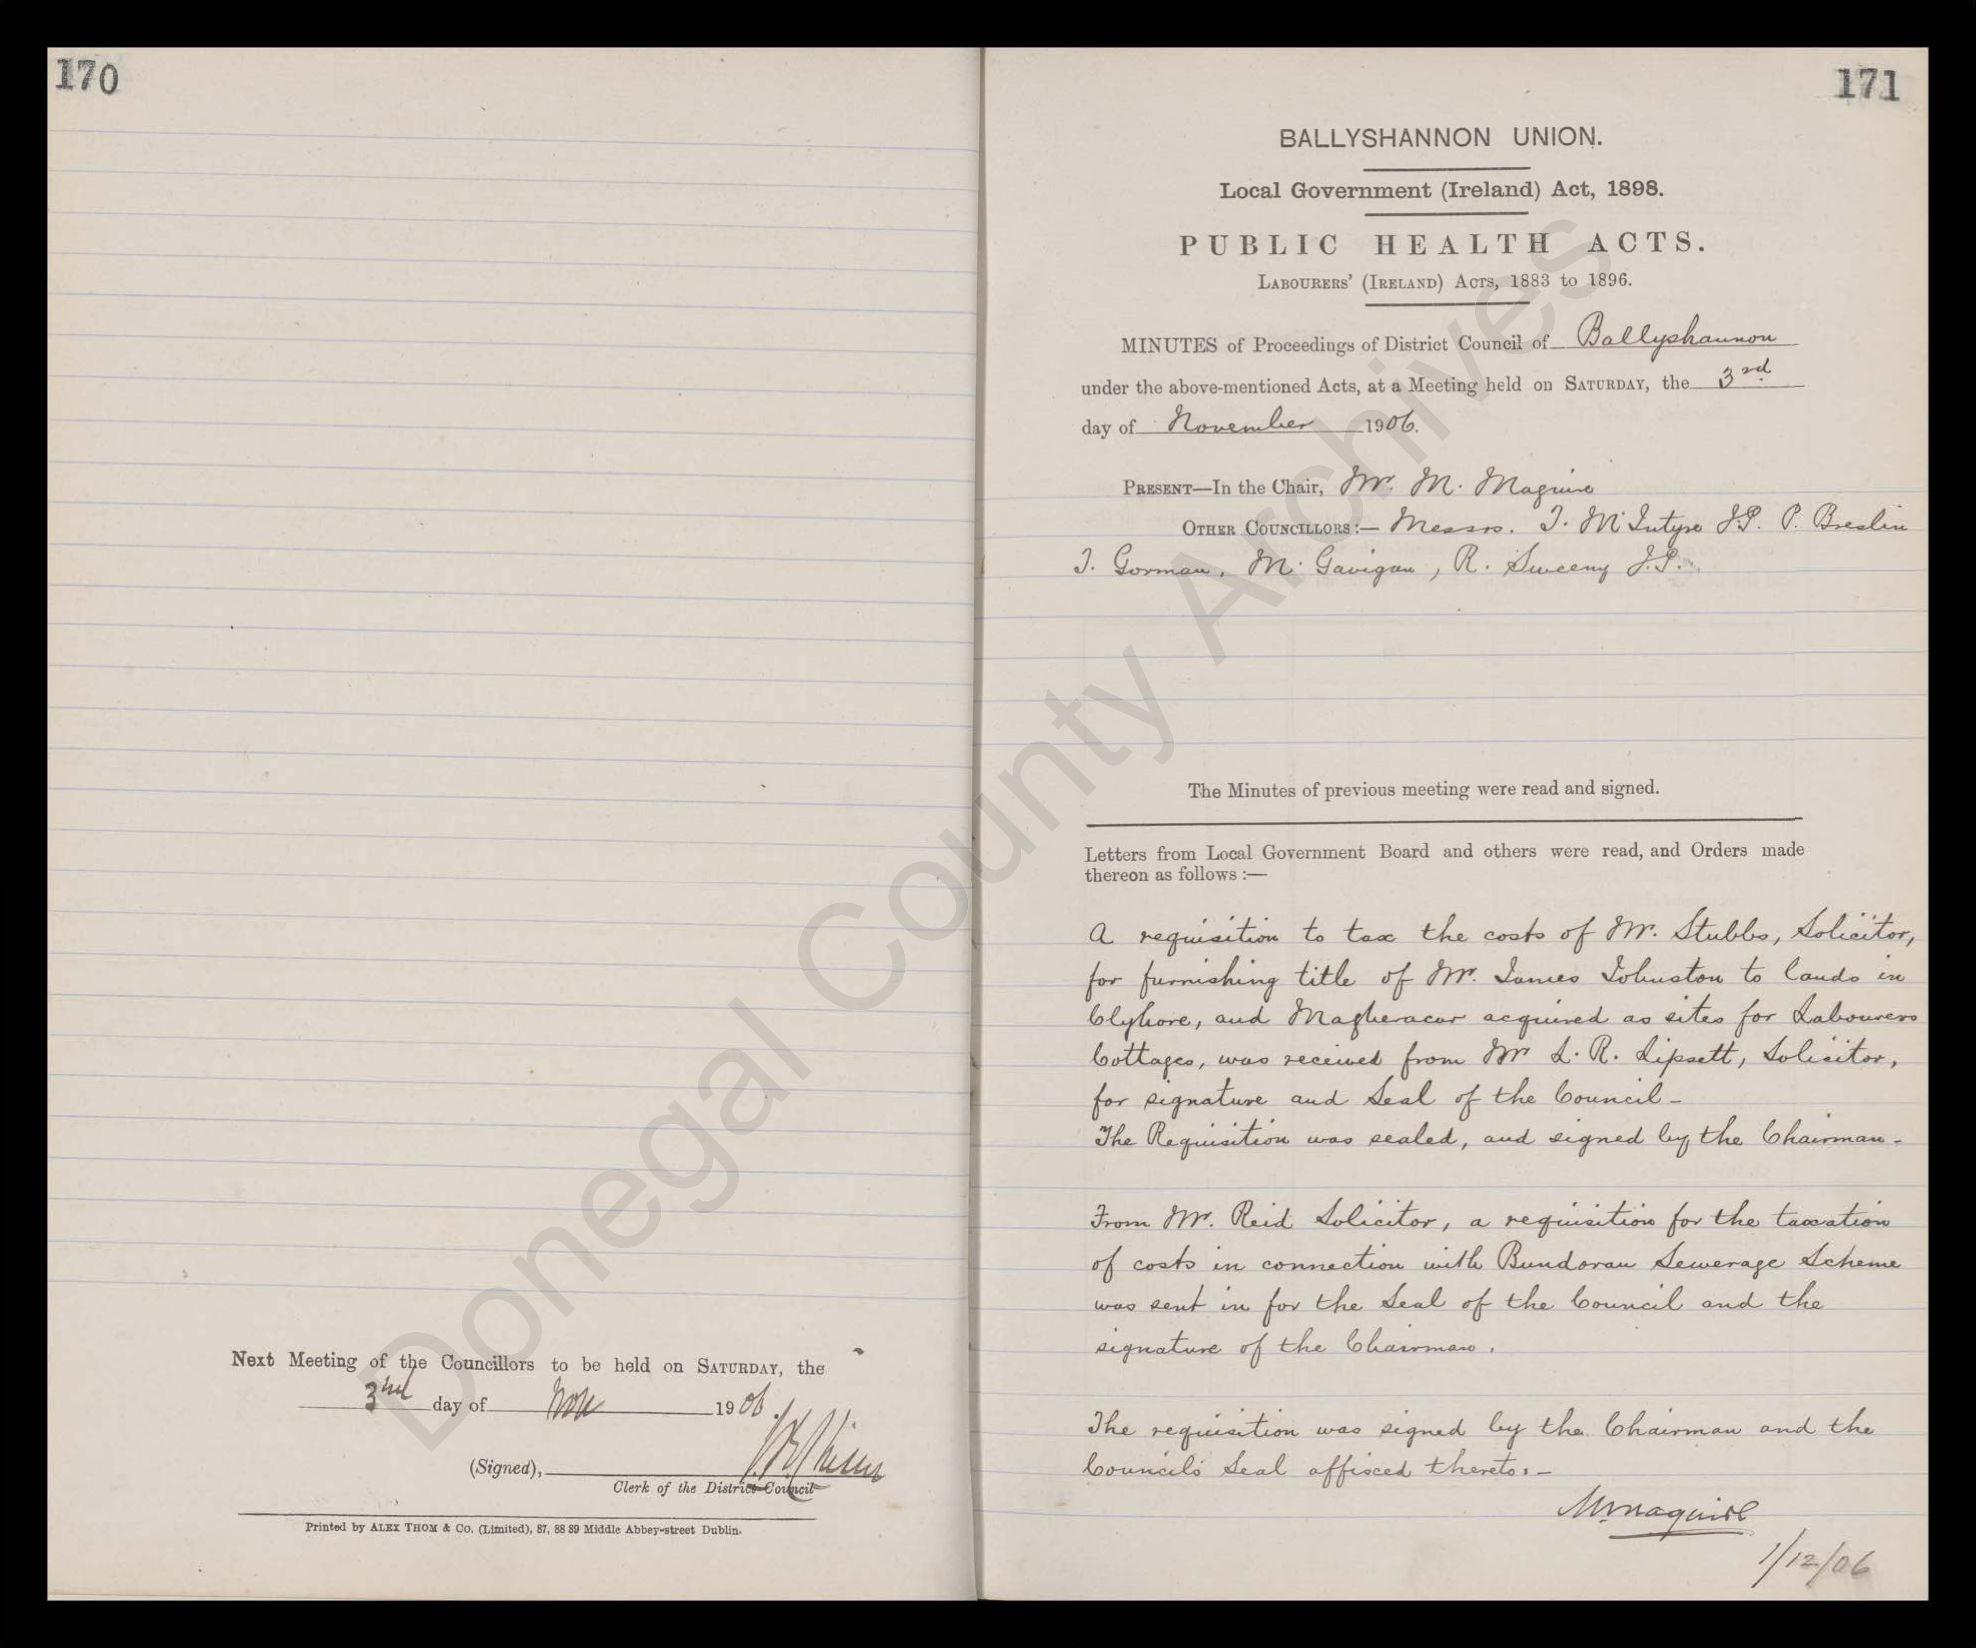 170
Next Meeting of the Councillors to be held on SATURDAY, the
3rd day of Nov 1906.
(Signed),
Clerk of the District Council
Printed by ALEX THOM & Co. (Limited), 87, 88 89 Middle Abbey-street Dublin.
171
BALLYSHANNON UNION.
Local Government (Ireland) Act, 1898.
PUBLIC HEALTH ACTS.
LABOURERS' (IRELAND) ACTS, 1883 to 1896.
MINUTES of Proceedings of District Council of Ballyshannon
under the above-mentioned Acts, at a Meeting held on SATURDAY, the 3rd
day of November 1906.
PRESENT—In the Chair, Mr. M. Maguire
OTHER COUNCILLORS:— Messrs. T. McIntyre J.P. P. Breslin
T. Gorman, M. Gavigan, R. Sweeny J.P.
The Minutes of previous meeting were read and signed.
Letters from Local Government Board and others were read, and Orders made
thereon as follows :—
A requisition to tax the costs of Mr. Stubbs, Solicitor,
for furnishing title of Mr. James Johnston to lands in
Clyhore, and Magheracar acquired as sites for Labourers
Cottages, was received from Mr L. R. Lipsett, Solicitor,
for signature and Seal of the Council -
The Requisition was sealed, and signed by the Chairman -
From Mr. Reid Solicitor, a requisition for the taxation
of costs in connection with Bundoran Sewerage Scheme
was sent in for the Seal of the Council and the
signature of the Chairman.
The requisition was signed by the Chairman and the
Council's Seal affixed thereto. -
M. Maguire
1/12/06
Donegal County Archives